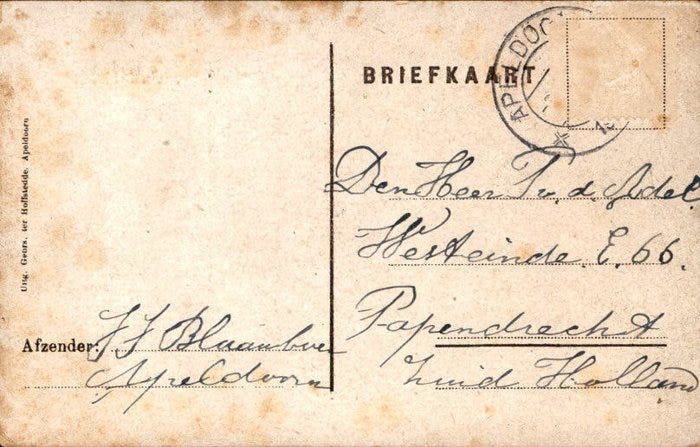 BRIEFKAART
APELDOO
Den Heer T v. d. Adel.
Westeinde E. 66.
Papendrecht
Zuid Holland
Uitg. Gebrs. ter Hoffstedde. Apeldoorn
Afzender:
Apeldoorn